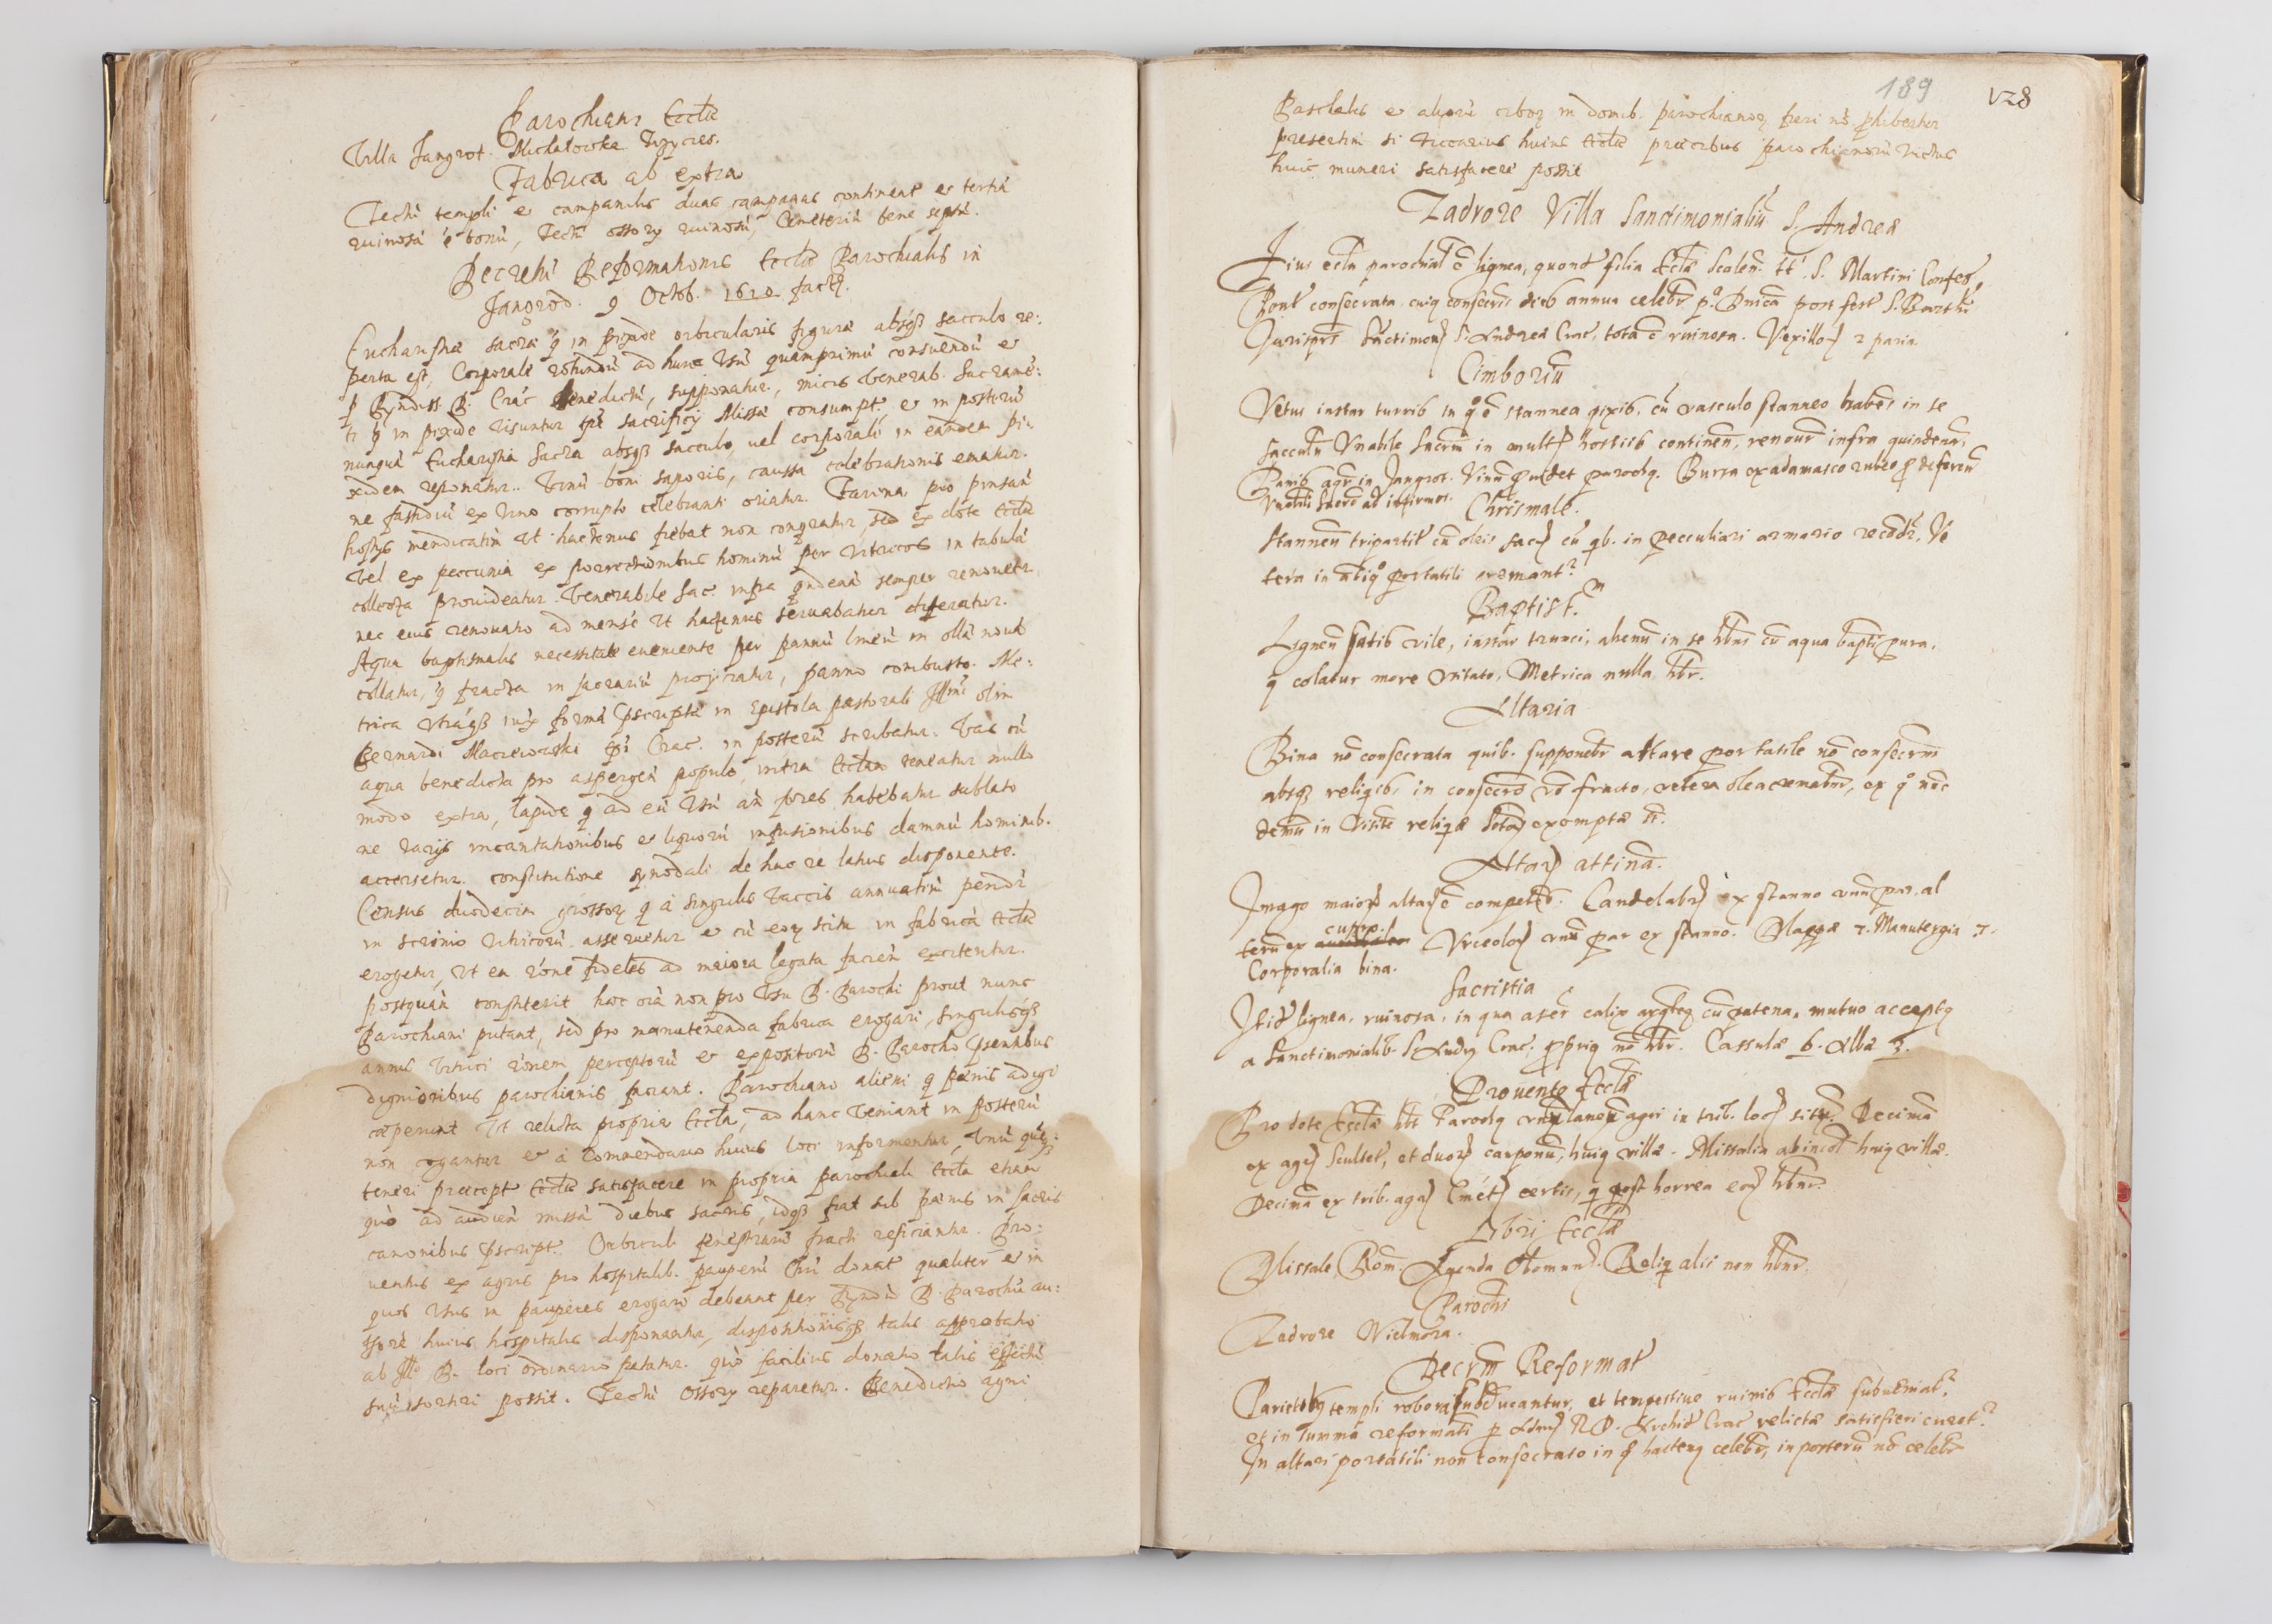 Parochiani Eccliæ
Villa Jangrot. Michałowka Trzycies.
Fabrica ab extra
Tectũ templi et campanilis duas campanas continent et tertiã
ruinosã ẽ bonũ, Tectũ ossorÿ ruinosũ, Cemeteriũ bene septũ.
Decretũ Reformationis Eccliæ Parochialis in
Jangrod. 9 Octob. 1618 factũ.
Eucharistia sacra q̃ in pixide orbicularis figuræ absq3 sacculo re:
perta est, Corporale rotundũ ad hunc usũ quamprimũ consuendũ et
benedictũ, supponatur, micis Venerab. Sacramẽ:
ti q̃ in pixide visuntur tpẽ sacrificÿ Missæ consumpt. et in posterũ
nunquã Eucharistia sacra absq3 sacculo vel corporali in eandem pi:
xidem reponatur. Vinũ boni saporis, caussa celebrationis ematur.
ne fastidiũ ex vino corrupto celebranti oriatur. Farina pro pinsan
hostÿs mendicatim ut hactenus fiebat non congregatur, sed ex dote Eccliæ
vel ex peccunia ex porrectionibus hominũ per vitricos in tabulã
collecta provideatur. Venerabile Sac. infra qndenã semper renovetur
nec eius renovatio ad mensẽ ut hactenus servabatur differatur.
Aqua baptismalis necessitate eveniente per pannũ lineũ in ollã novã
collatur, q̃ fracta in sacrariũ proÿciatur, panno combusto. Me:
trica utraq3 iux formã pscriptã in Epistola pastorali Illmi olim
Bernardi Macieiowski Epi Crac. in posterũ scribatur. Vas cũ
aqua benedicta pro aspergen populo, intra Eccliam teneatur nullo
modo extra, lapide q̃ ad eũ usũ an fores habebatur sublato
ne varÿs incantationibus et liquorũ infusionibus damnũ hominib.
accersetur. constitutione synodali de hac re latius disponente.
Census duodecim grossorũ q̃ a singulis vaccis annuatim pendi
in scrinio vitricorũ asservetur et cũ eorũ scitu in fabricã Eccliæ
erogetur, ut ea rõne fideles ad maiora legata facien excitentur.
postquam constiterit hoc oĩa non pro usu R. Parochi prout nunc
Parochiani putant, sed pro manutenenda fabrica erogari, singulisq3
annis vitrici rõnem perceptorũ et expositorũ R. Parocho psentibus
dignioribus parochianis faciant. Parochiani alieni q̃ pœnis adigi
cæperunt ut relicta propria Ecclia, ad hanc veniant in posterũ
non cogantur et a Commendario huius loci informentur, unũ quẽq3
teneri præcept Eccliæ satisfacere in propria parochiali Ecclia etiam
quò ad audien missã diebus sacris, idq3 fiat sub pœnis in sacris
canonibus pscript. Orbiculi fenestrarũ fracti reficiantur. Pro:
ventus ex agris pro hospitalib. pauperũ Chri donat qualiter et in
quos usus in pauperes erogari debeant per Rndũ D. Parochũ au:
thorẽ huius hospitalis disponantur, dispositionisq3 talis approbatio
ab Illmo D. loci ordinario petatur. quò facilius donatio talis effectũ
suũ sortiri possit. Tectũ Ossorÿ reparetur. Benedictio agni
189 128
Paschalis et aliorũ cibor in domib. parochianorũ fieri nõ phibeatur
presertim si vicarius huius Eccliæ precibus parochianorũ victus
huic muneri satisfacere possit
Zadroze Villa Sanctimonialiũ S. Andreæ
Eius eccla parochial ẽ lignea, quond filia Eccliæ Scalen. tt S. Martini Confes
Pont consecrata cuiq consecrois dieb annua celebr p. Dnica post fest S. Barthi
Jurispat Sactimon S. Andreæ Crac, tota ẽ ruinosa. Vexillor 2 paria
Cimboriũ
Vetus instar turris in q ẽ stannea pixis, cũ vasculo stanneo habẽs in se
sacculũ Vnabile Sacrm in mult hostiis continen, renovr infra quindenã,
Panis agr in Jangrot. Vinũ pvidet parochq. Bursa ex adamasco rubeo p deferen
Vnabili Sacro ad infirmos. Chrismale.
Stanneũ tripartit cũ oleis sacris cũ qb. in pecculiari armario recõdr. Ve
tera in antiq portatili cremant.
Baptistm
Ligneũ satis vile, instar trunci, ahenũ in se hñs cũ aqua bapti pura,
q colatur more usitato, Metrica nulla hr.
Altaria
Bina nõ consecrata quib. supponebr altare portatile nõ consecrm
absq3 reliqis, in consecro vo fracto, vetera olea cremabr, ex q nõc
demũ in Visite reliqæ exemptæ st.
Altaris attina.
Imago maioris altaris ẽ competẽs. Candelabr ex stanno unũ par. al
terũ ex cupro. Vrceolor unũ par ex stanno. Mappæ 7. Manutergia 7.
Corporalia bina.
Sacristia
Itid lignea, ruinosa, in qua aser calix argteq cũ patena, mutuo acceptq
a Sanctimonialib. S Andr Crac. ppriq nõ hr. Cassulæ 6. Albæ 3.
Proventq Eccliæ
Pro dote Eccliæ ht Parochq unũ laneũ agri in trib. locis sitũ. Decimã
ex agris Scultet, et duor cauponũ, huiq villæ. Missalia ab incol huiq villæ.
Decimã ex trib. agris Cmet certis, q post horrea eor hñr.
Libri Eccliæ
Missale Rom. Agenda Romana. Reliq alii non hñr.
Parochi
Zadroze Wielmoza.
Decrm Reformat
Parietibq templi robora subducantur, et tempestive ruinis Eccliæ subveniat,
et in summa reformati p Admr R D. Archid Crac relictæ satisfieri curet.
In altari portatili non consecrato in q hacteq celebr, in posterũ nõ celebr